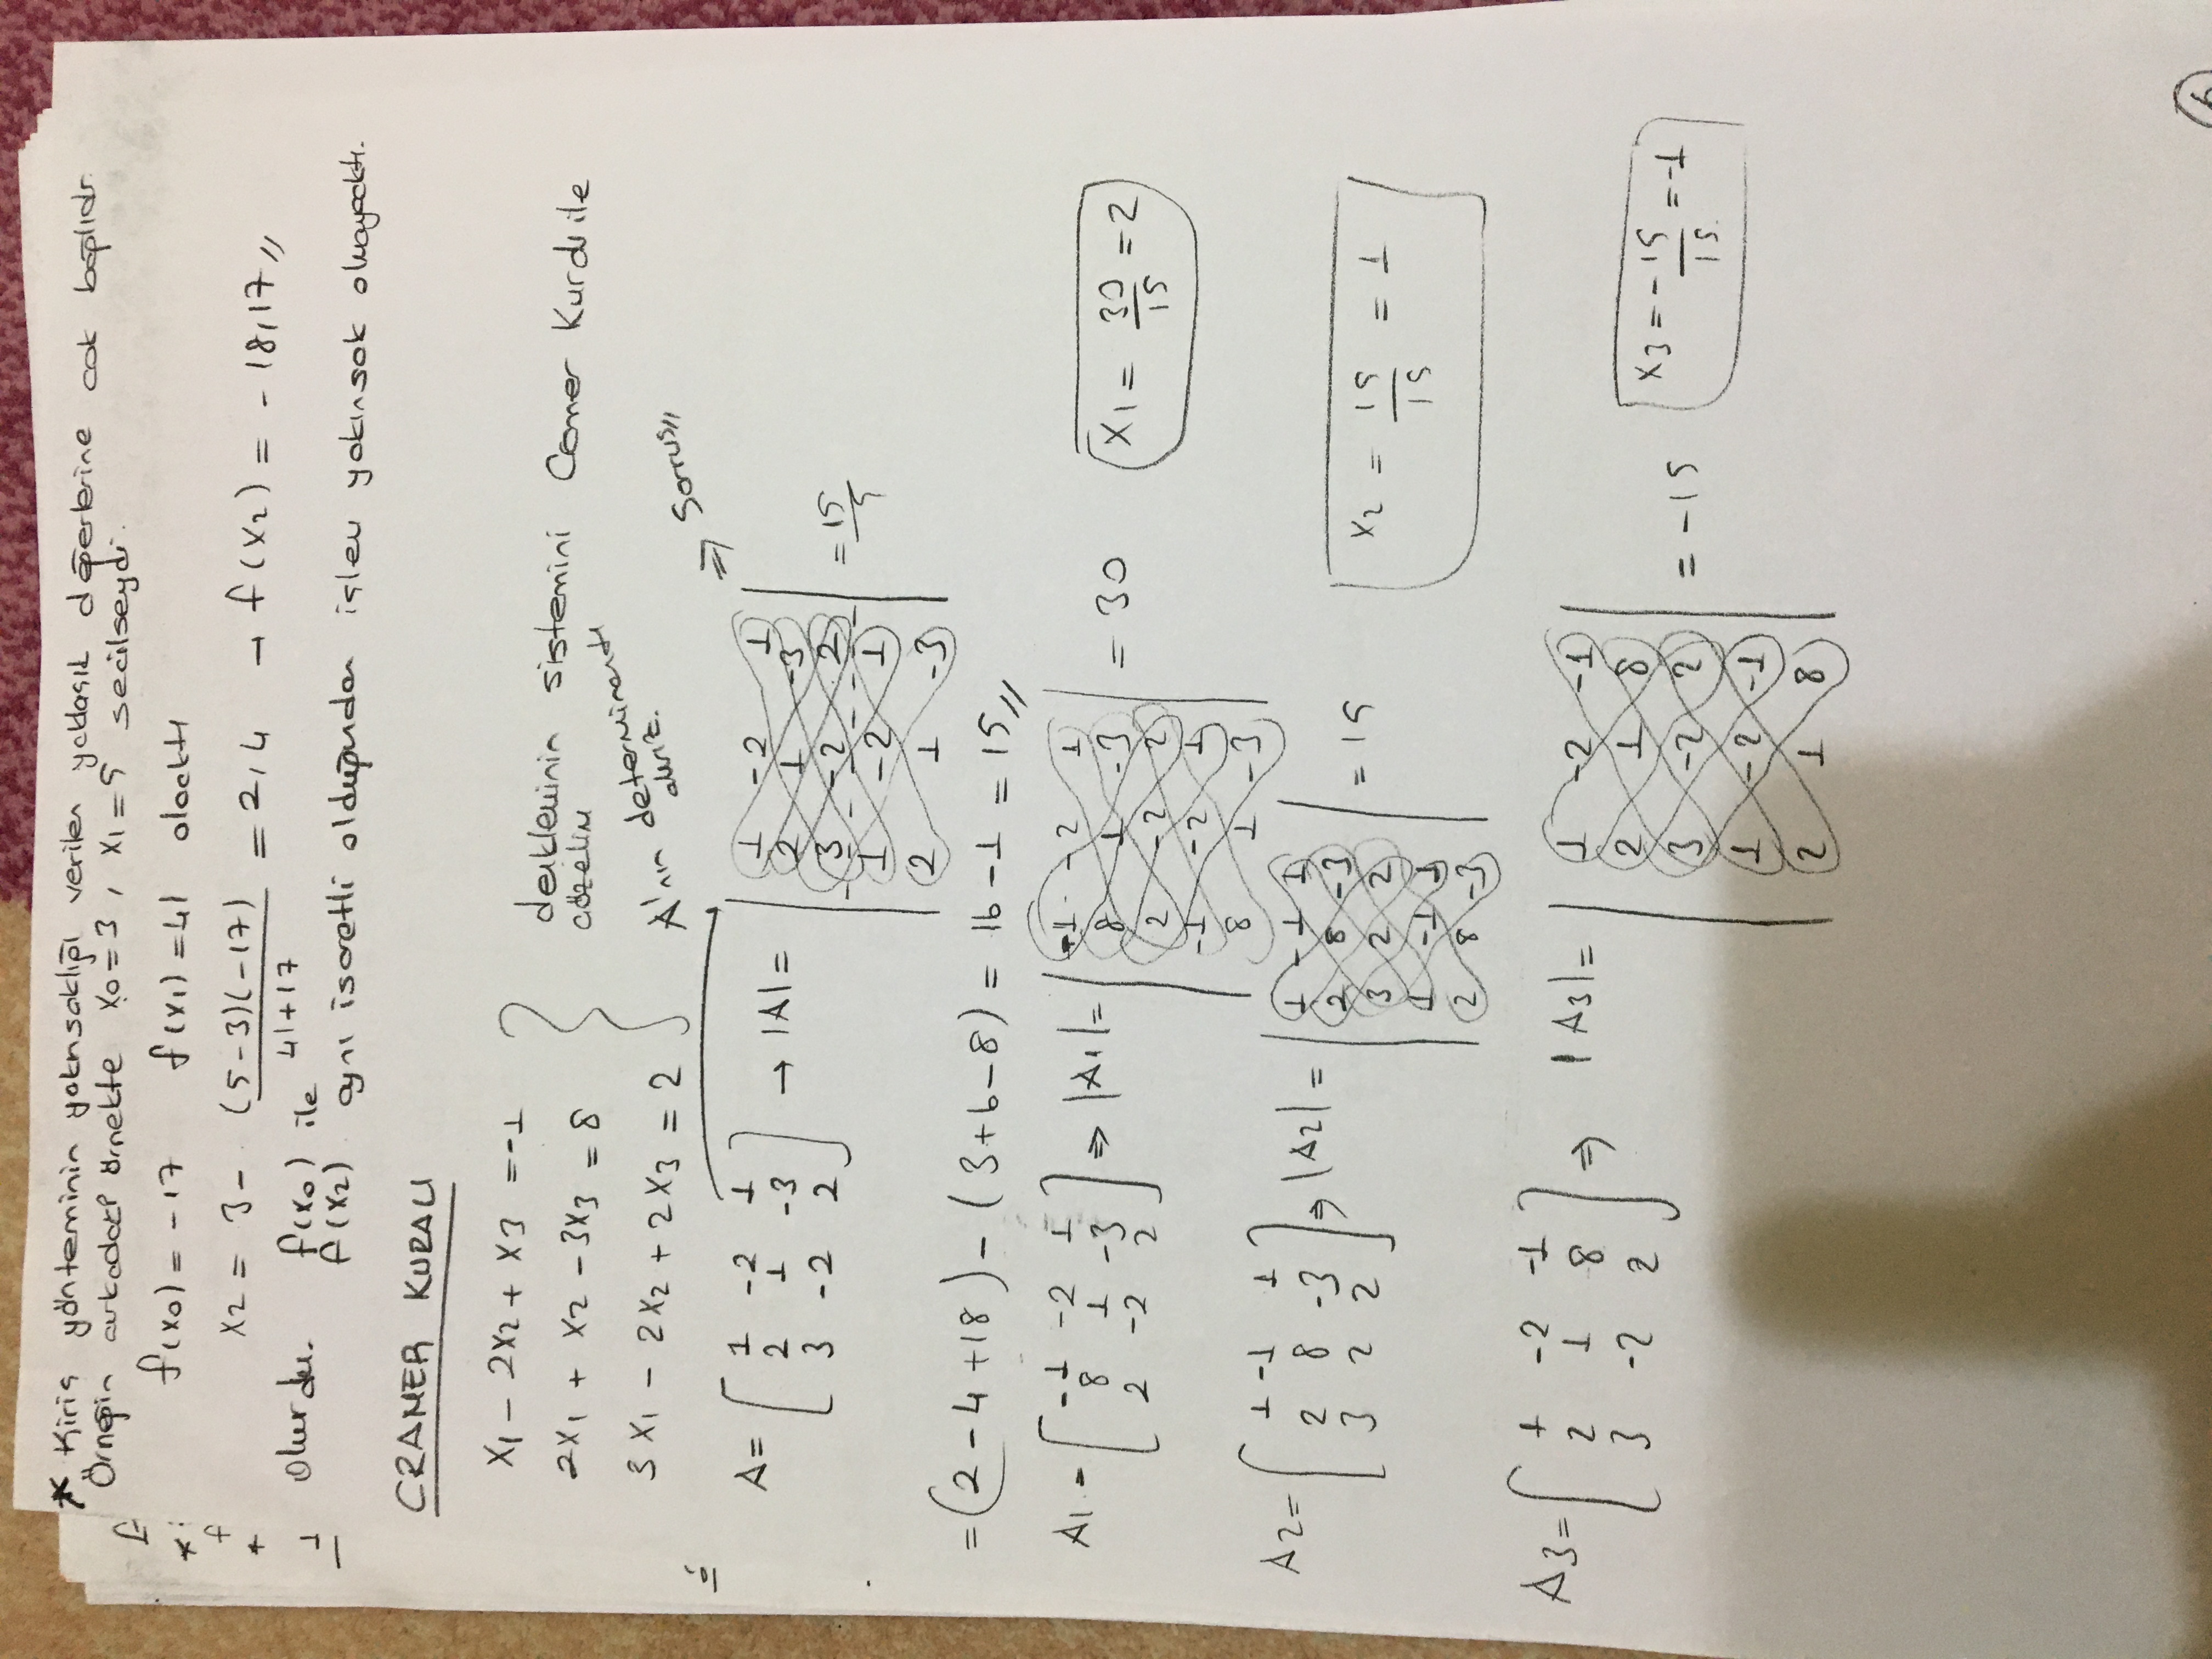 * Kiriş yönteminin yakınsaklığı verilen yaklaşık değerlerine çok bağlıdır.
Örneğin arkadaki örnekte x0 = 3 , x1 = 5 seçilseydi.
f(x0) = -17 f(x1) = 41 olacaktı
x2 = 3 - (5-3)(-17) / 41+17 = 2,4 → f(x2) = -18,17 //
olurdu. f(x0) ile
f(x2) aynı işaretli olduğundan işlem yakınsak olmayacaktı.
CRAMER KURALI
x1 - 2x2 + x3 = -1
2x1 + x2 - 3x3 = 8
3x1 - 2x2 + 2x3 = 2
denkleminin sistemini Cramer Kuralı ile
çözelim
A'nın determinantı
alırız.
⇒ Sarrus //
A = [ 1 -2 1
2 1 -3
3 -2 2 ] → |A| =
| 1 -2 1
2 1 -3
3 -2 2
1 -2 1
2 1 -3 | = 15
= (2 - 4 + 18) - (3 + 6 - 8) = 16 - 1 = 15 //
A1 = [ -1 -2 1
8 1 -3
2 -2 2 ] ⇒ |A1| =
| -1 -2 1
8 1 -3
2 -2 2
-1 -2 1
8 1 -3 | = 30
x1 = 30/15 = 2
A2 = [ 1 -1 1
2 8 -3
3 2 2 ] ⇒ |A2| =
| 1 -1 1
2 8 -3
3 2 2
1 -1 1
2 8 -3 | = 15
x2 = 15/15 = 1
A3 = [ 1 -2 -1
2 1 8
3 -2 2 ] ⇒ |A3| =
| 1 -2 -1
2 1 8
3 -2 2
1 -2 -1
2 1 8 | = -15
x3 = -15/15 = -1